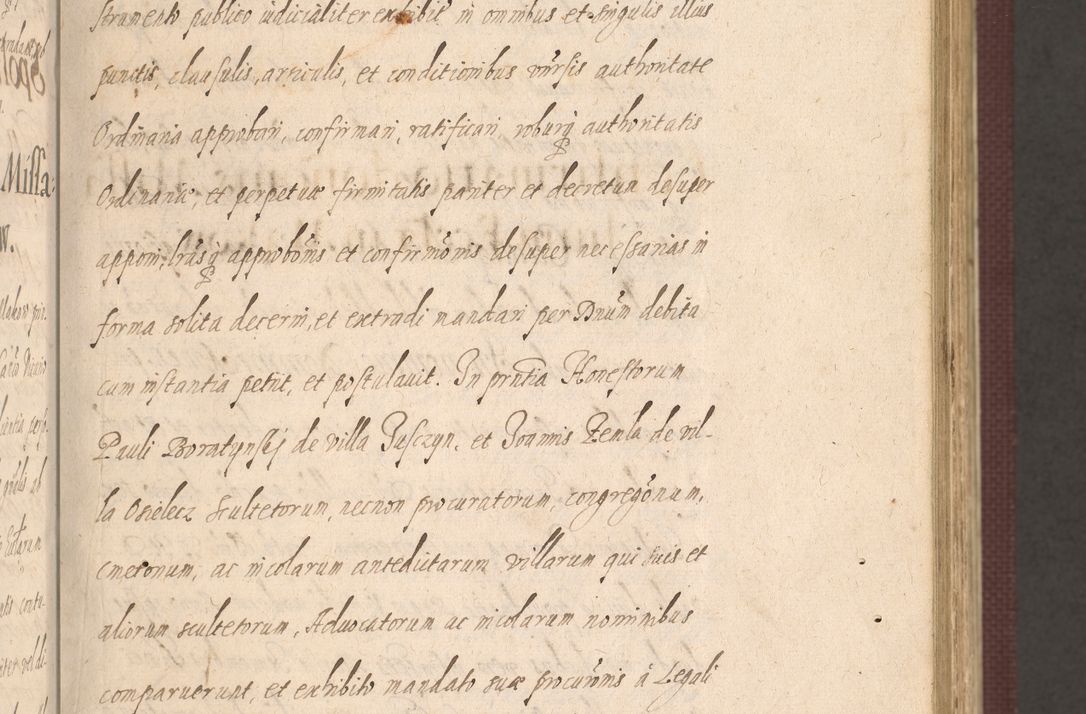 strumento publico iudicialiter exhibit, in omnibus et singulis illius
punctis, clausulis, articulis, et conditionibus vnīrsis authoritate
Ordinaria approbari, confirmari, ratificari, roburq authoritatis
Ordinariæ, et perpetuæ firmitatis pariter et decretum desuper
apponi, lrāsq approbōnis et confirmōnis desuper necessarias in
forma solita decerni, et extradi mandari per Dnūm debita
cum instantia petiit, et postulauit. In prntīa Honestorum
Pauli Boratynskj de villa Juszczyn, et Joannis Zemla de vil-
la Osielecz scultetorum, necnon procuratorum, congregōnum,
cmetonum, ac incolarum antedictarum villarum qui suis et
aliorum scultetorum, Aduocatorum ac incolarum nominibus
comparuerunt, et exhibito mandato suæ procurōnis à Legali
Missa: